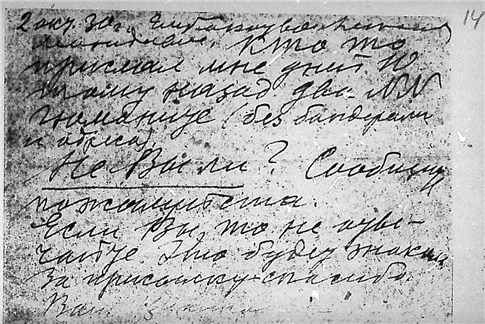 14
2 окт. 30 г.
Кто то
прислал мне дней 10
тому назад два NN
(без бандероли
и адреса)
Не Вы ли? Сообщите
пожалуйста.
Если Вы, то не отве-
чайте. Это будет знаком
За присылку спасибо
Ваш